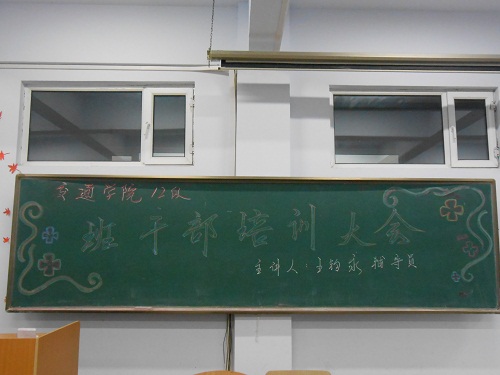 交通学院 12级
班干部培训大会
主讲人：永辅导员